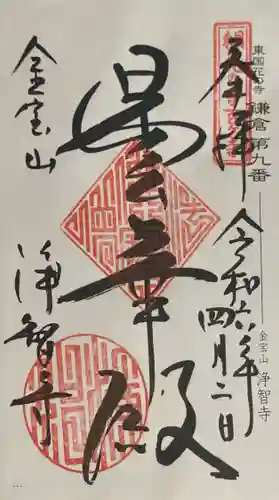 東国花の寺 鎌倉第九番
金宝山 浄智寺
奉拝
令和六年四月二日
曇華殿
金宝山
浄智寺